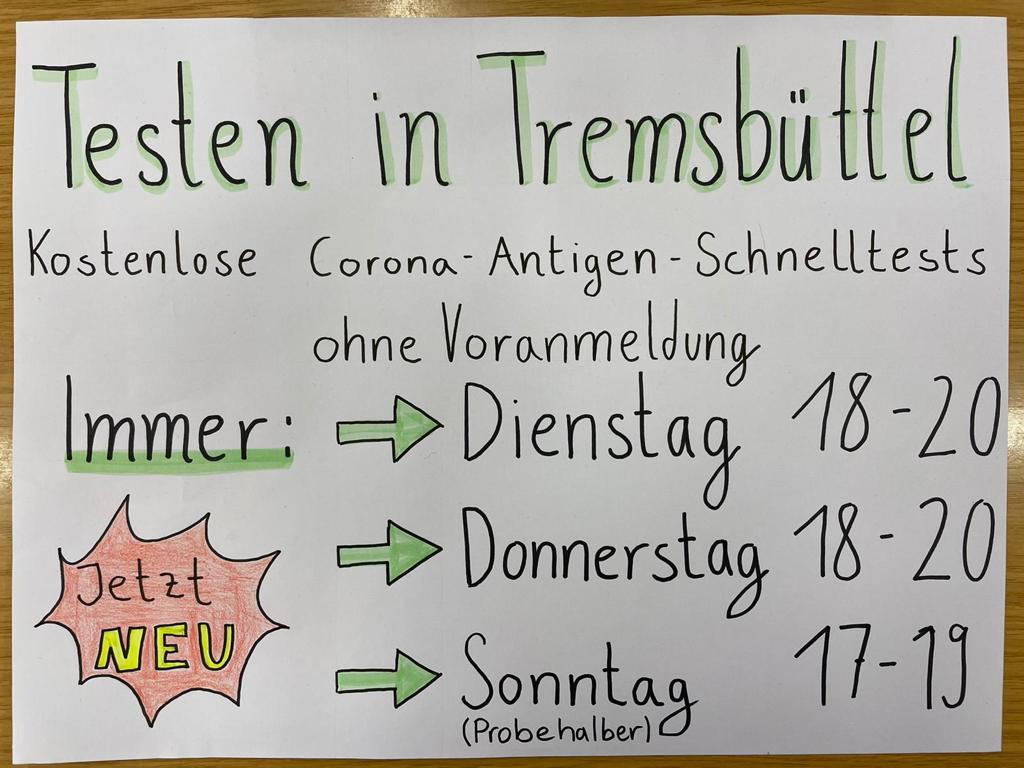 Testen in Tremsbüttel
Kostenlose Corona-Antigen-Schnelltests
ohne Voranmeldung
Immer: Dienstag 18-20
Donnerstag 18-20
Jetzt
NEU
Sonntag 17-19
(Probehalber)